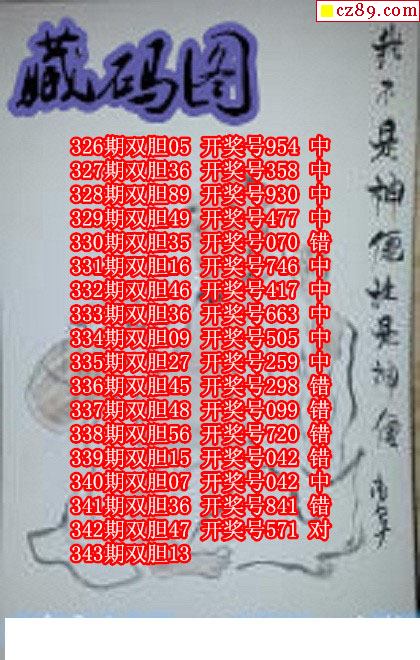 cz89.com
藏码图
326期双胆05 开奖号954 中
327期双胆36 开奖号358 中
328期双胆89 开奖号930 中
329期双胆49 开奖号477 中
330期双胆35 开奖号070 错
331期双胆16 开奖号746 中
332期双胆46 开奖号417 中
333期双胆36 开奖号663 中
334期双胆09 开奖号505 中
335期双胆27 开奖号259 中
336期双胆45 开奖号298 错
337期双胆48 开奖号099 错
338期双胆56 开奖号720 错
339期双胆15 开奖号042 错
340期双胆07 开奖号042 中
341期双胆36 开奖号841 错
342期双胆47 开奖号571 对
343期双胆13
我不是神仙
是神仙